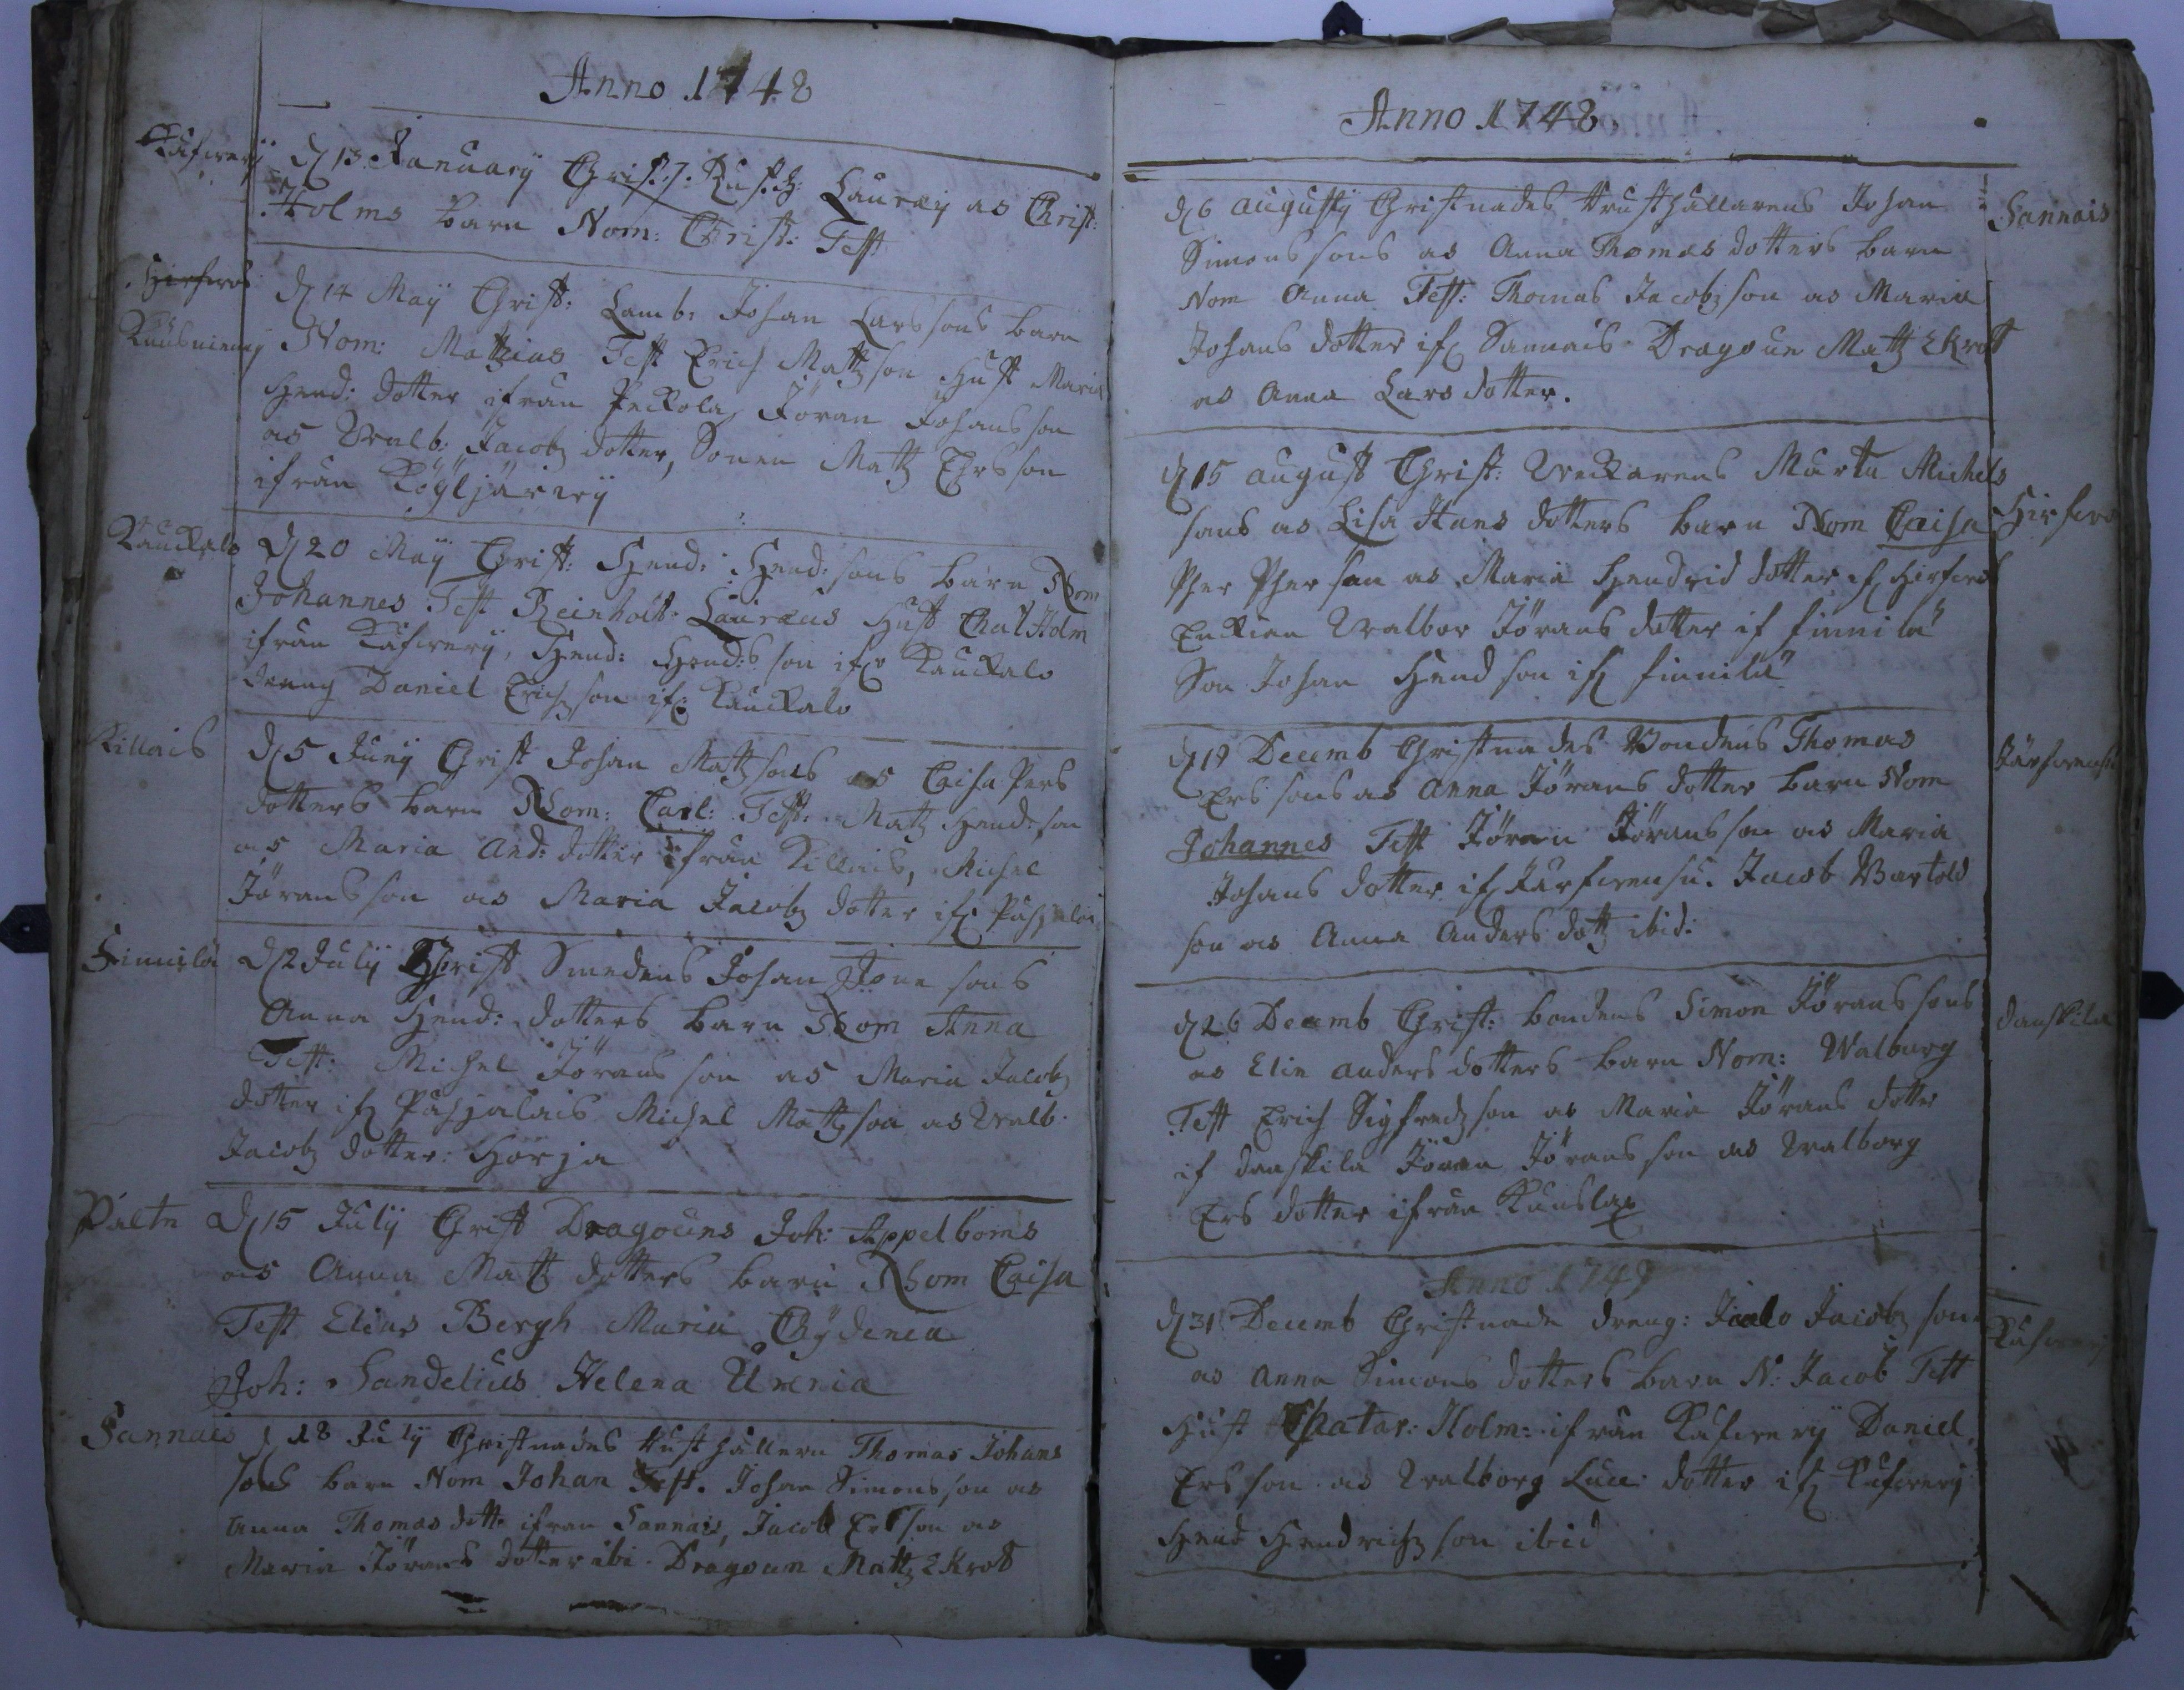 Anno 1748
Käfwerÿ
d 13 Januarÿ Christ: Rust.h: Lauræi as Christ:
Holms barn Nom: Christ: Test
Hirfwos
d 14 Maÿ Christ: Lamb: Johan Larssons barn
Nom: Matthias Test Erich Mattzson Hust Maria
Hend: dotter ifrån Peckola, Jöran Johansson
as Walb: Jacobz dotter, Sonen Mattz Ehrsson
ifrån Köyljärwÿ
Kauckalo
d 20 Maÿ Christ: Hend: Hend:sons barn Nom
Johannes Test Reinholt Lauræus Hust Chat Holm
ifrån Käfwerÿ, Hend: Hend:s son ifr Kauckalo
dreng Daniel Erichson if: Kauckalo
Killais
d 5 Junÿ Christ Johan Mattzsons as Caisa Pers
dotters barn Nom: Carl: Test: Mattz Hend: son
as Maria And: dotter ifrån Killais, Michel
Jöransson as Maria Jacobz dotter if
Finnilä
d 2 Julÿ Christ Smedens Johan Jone sons
Anna Hend: dotters barn Nom Anna
Test: Michel Jörans son as Maria Jacobz
dotter if Päsjalais Michel Mattzson as Walb.
Jacobz dotter: Horja
Palta
d 15 Julÿ Christ Dragouns Joh: Appelboms
as Anna Mattz dotters barn Nom Caisa
Test Elias Bergh Maria Cÿdenia
Joh: Sandelius Helena Urenia
Sannais
d 18 Julÿ Christnades Rusthållern Thomas Johans
sons barn Nom Johan Test. Johan Simonsson as
Anna Thomas dott: ifrån Sannais, Jacob Ersson as
Maria Jörans dotter ibi. Dragoun Mattz Ekrot
Anno 1748
d 6 Augustÿ Christnades Rusthållarens Johan
Sannais
Simonssons as Anna Thomas dotters barn
Nom Anna Test: Thomas Jacobzson as Maria
Johans dotter if Sannais Dragoun Mattz Ekrot
as Anna Lars dotter.
d 15 August Christ: Michels
sons as Lisa Hans dotters barn Nom Caisa
Hirfwos
Pher Pherson as Maria Hendrid dotter if Hirfwos
Enkian Walbor Jörans dotter if Finnilä
Son Johan Hendson if Finnilä
d 18 Decemb Christnades Bondens Thomas
Ers sons as Anna Jörans dotter barn Nom
Johannes Test Jöran Jöransson as Maria
Johans dotter if Järfwensu. Jacob Bartold
son as Anna Anders dott ibid:
d 26 Decemb Christ: bondens Simon Jöranssons
Danskila
as Elin Anders dotters barn Nom: Walburg
Test Erich Sigfredzson as Maria Jörans dotter
if Danskila Jöran Jöransson as Walborg
Ers dotter ifrån Kunslax
Anno 1749
d 31 Decemb Christnade dreng: Jacobz son
Käfwerÿ
as Anna Simons dotters barn N: Jacob Test
Hust Chatar: Holm: ifrån Käfwerÿ Daniel
Ersson as Walborg Luce: dotter if Käfwerÿ
Hend Hendrichzson ibid